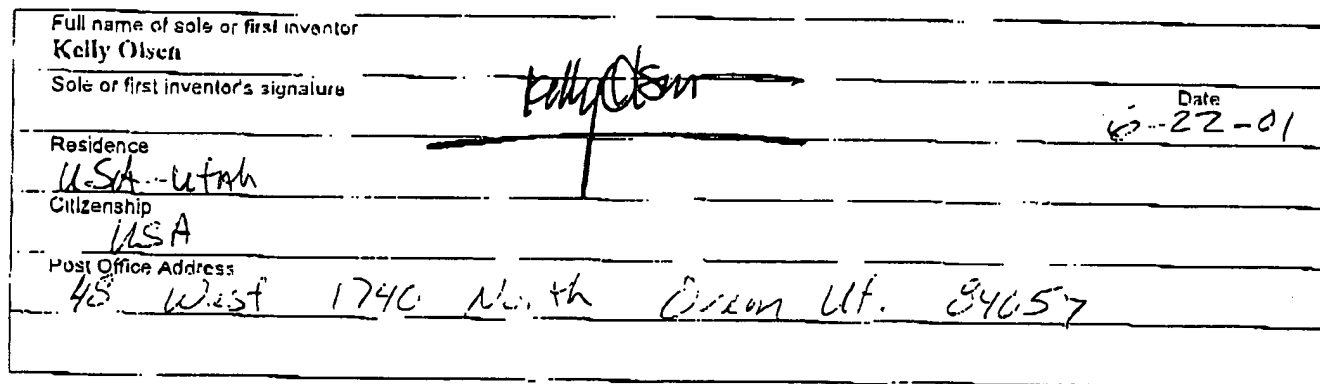 Full name of sole or first inventor
Kelly Olsen
Sole or first inventor's signature
Kelly Olsen
Date
6-22-01
Residence
USA-Utah
Citizenship
USA
Post Office Address
48 West 1740 North Orem Ut. 84057